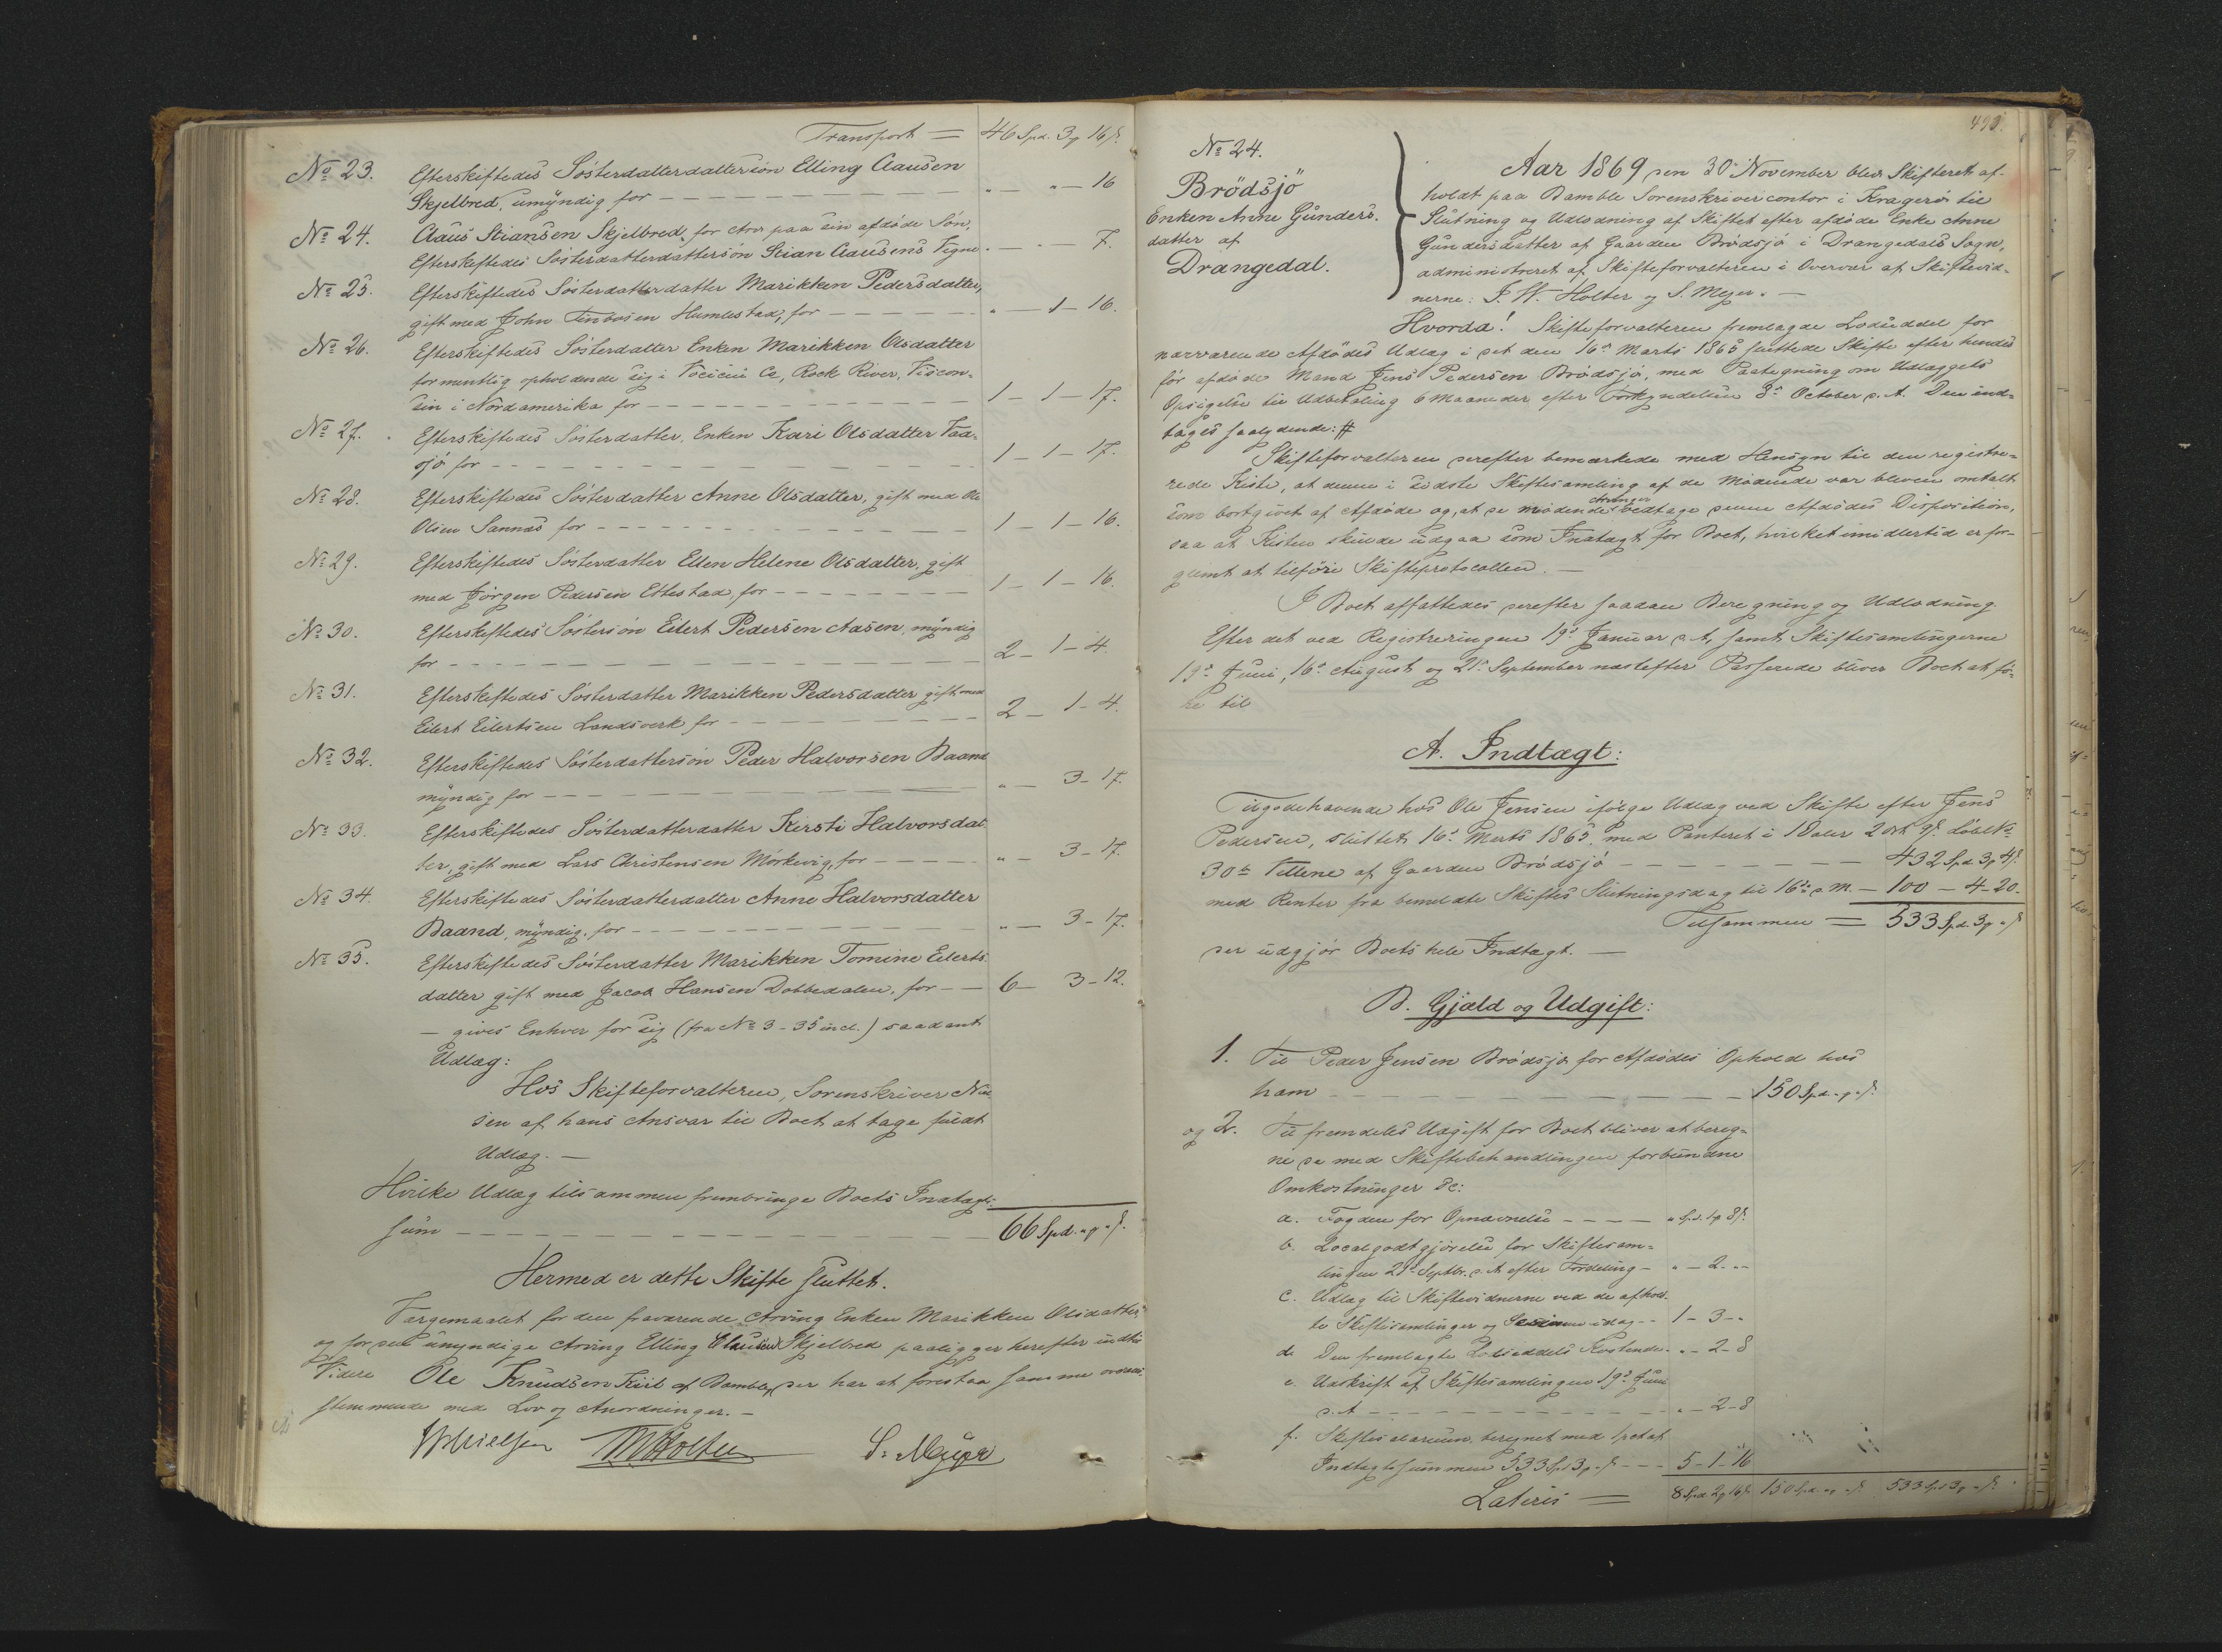 Transport = 46 Spd. 3 ß 16 s.
No 23. Efterskiftedes Sösterdatterdattersön Elling Clausen
Skjelbred, umyndig for — — „ — „ — 16
No 24. Claus Stiansen Skjelbred, for Arv paa sin afdöde Sön,
Efterskiftedes Sösterdatterdattersön Stian Clausens Vegne — „ — 7.
No 25. Efterskiftedes Sösterdatterdatter Marikken Pedersdatter,
gift med John Humlestad, for — — „ — 1 — 16.
No 26. Efterskiftedes Sösterdatter Enken Marikken Olsdatter
formentlig opholdende sig i Ca, Rock River, Viscon-
sin i Nordamerika for — — 1 — 1 — 17.
No 27. Efterskiftedes Sösterdatter, Enken Kari Olsdatter Vaa-
sjö for — — 1 — 1 — 17.
No 28. Efterskiftedes Sösterdatter Anne Olsdatter, gift med Ole
Olsen Sannæs for — — 1 — 1 — 16.
No 29. Efterskiftedes Sösterdatter Ellen Helene Olsdatter, gift
med Jörgen Pedersen Ettestad, for — — 1 — 1 — 16.
No 30. Efterskiftedes Söstersön Eilert Pedersen Aasen, myndig
for — — 2 — 1 — 4.
No 31. Efterskiftedes Sösterdatter Marikken Pedersdatter gift med
Eilert Eilertsen Landsverk for — — 2 — 1 — 4.
No 32. Efterskiftedes Sösterdattersön Peder Halvorsen Baand
myndig for — — „ — 3 — 17.
No 33. Efterskiftedes Sösterdatterdatter Kirsti Halvorsdat-
ter, gift med Lars Christensen Mörkevig, for — — „ — 3 — 17.
No 34. Efterskiftedes Sösterdatterdatter Anne Halvorsdatter
Baand, myndig, for — — „ — 3 — 17.
No 35. Efterskiftedes Sösterdatter Marikken Tomine Eilerts-
datter gift med Jacob Hansen Dobbedalen, for — — 6 — 3 — 12.
— gives Enhver for sig (fra No 3 - 35 incl.) saadant
Udlæg:
Hos Skifteforvalteren, Sorenskriver Niel-
sen af hans Ansvar til Boet at tage fuldt
Udlæg. —
Hvilke Udlæg tilsammen frembringe Boets Indtægts-
sum — — 66 Spd. „ ß „ s.
Hermed er dette Skifte sluttet.
Værgemaalet for den fraværende Arving Enken Marikken Olsdatter
og for den umyndige Arving Elling Clausen Skjelbred paaligger herefter indtil
Videre Ole Knudsen Kiil af Bamble, der har at forestaa samme overens-
stemmende med Lov og Anordninger. —
Nielsen MHolter S. Meyer
493.
No 24.
Brödsjö
Enken Anne Gunders-
datter af
Drangedal.
Aar 1869 den 30te November blev Skifteret af-
holdt paa Bamble Sorenskrivercontor i Kragerö til
Slutning og Udlodning af Skiftet efter afdöde Enke Anne
Gundersdatter af Gaarden Brödsjö i Drangedals Sogn,
administreret af Skifteforvalteren i Overvær af Skiftevid-
nerne: J. W. Holter og S. Meyer. —
Hvorda! Skifteforvalteren fremlagde Lodseddel for
nærværende Afdödes Udlæg i det den 16de Marts 1865 sluttede Skifte efter hendes
för afdöde Mand Jens Pedersen Brödsjö, med Paategning om Udlæggets
Opsigelse til Udbetaling 6 Maaneder efter Forkyndelsen 8de October d. A. Den ind-
tages saalydende: #
Skifteforvalteren derefter bemærkede med Hensyn til den registre-
rede Kiste, at denne i sidste Skiftesamling af de Mödende var bleven omtalt
som bortgivet af Afdöde og, at de mödende Arvinger vedtage denne Afdödes Disposition,
saa at Kisten skulde udgaa som Indtægt for Boet, hvilket imidlertid er for-
glemt at tilföre Skifteprotocollen. —
I Boet affattedes derefter saadan Beregning og Udlodning.
Efter det ved Registreringen 19de Januar d. A. samt Skiftesamlingerne
19de Juni, 16de August og 21de September næstefter Passerede bliver Boet at fö-
re til
A. Indtægt:
Tilgodehavende hos Ole Jensen ifölge Udlæg ved Skifte efter Jens
Pedersen, sluttet 16de Marts 1865 med Panteret i 1 Daler 2 Ort 9 s. Löbe No
30te Vettene af Gaarden Brödsjö — — 432 Spd. 3 ß 4 s.
med Renter fra bemeldte Skiftes Slutningsdag til 16de d. M. — 100 — 4 — 20.
Tilsammen = 533 Spd. 3 ß „ s.
der udgjör Boets hele Indtægt. —
B. Gjæld og Udgift:
1. Til Peder Jensen Brödsjö for Afdödes Ophold hos
ham — — 150 Spd. „ ß „ s.
og 2. Til fremdeles Udgift for Boet bliver at bereg-
ne de med Skiftebehandlingen forbundne
Omkostninger &c:
a. Fogden for Opnævnelse — — „ Spd. 1 ß 8 s.
b. Localgodtgjörelse for Skiftesam-
lingen 21de Septbr. d. A. efter Fordeling — „ — 2 — „
c. Udlæg til Skiftevidnerne ved de afhold-
te Skiftesamlinger og Sessionen idag — 1 — 3 — „
d. Den fremlagte Lodseddels Kostende „ — 2 — 8
e. Udskrift af Skiftesamlingen 19de Juni
d. A. — — „ — 2 — 8
f. Skiftesalarium, beregnet med 1 pct af
Indtægtssummen 533 Spd 3 ß „ s. — — 5 — 1 — 16
Lateris = 8 Spd 2 ß 16 s. 150 Spd. „ ß „ s. 533 Spd 3 ß „ s.